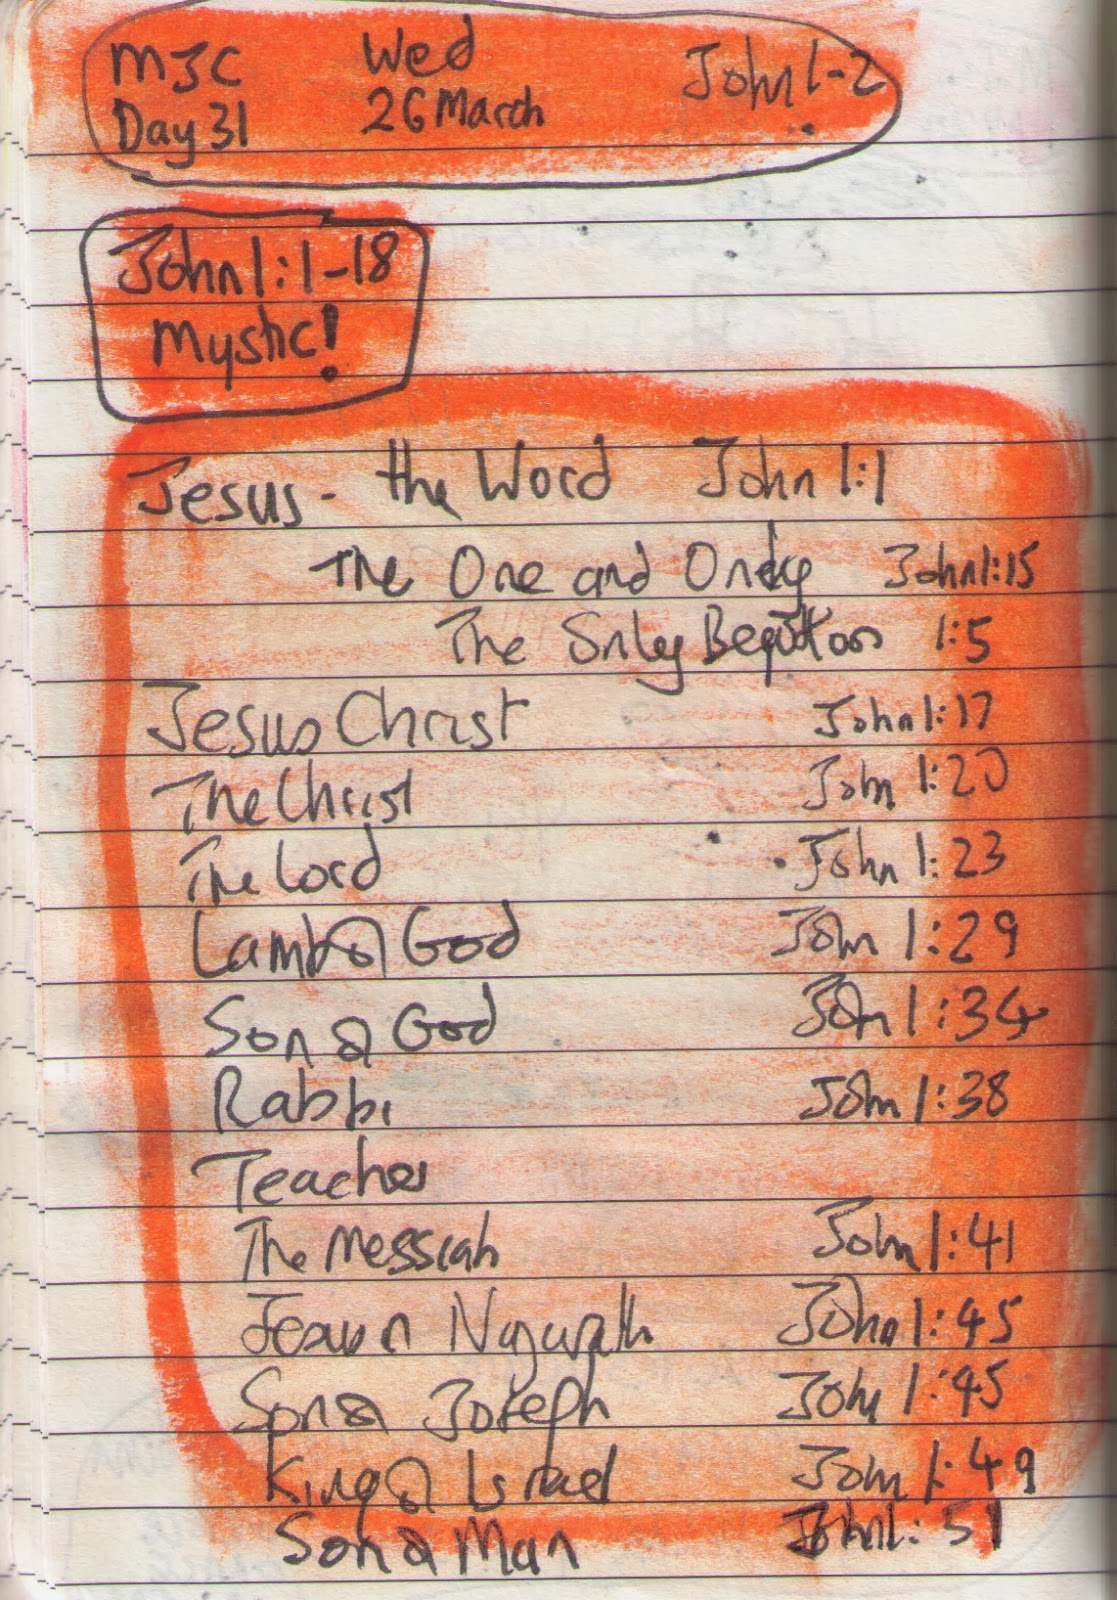 MJC Wed John 1-2
Day 31 26 March
John 1:1-18
Mystic!
Jesus - the Word John 1:1
The One and Only John 1:15
The Only Begotten 1:5
Jesus Christ John 1:17
The Christ John 1:20
The Lord John 1:23
Lamb of God John 1:29
Son of God John 1:34
Rabbi John 1:38
Teacher
The Messiah John 1:41
Jesus of Nazareth John 1:45
Son of Joseph John 1:45
King of Israel John 1:49
Son of Man John 1:51